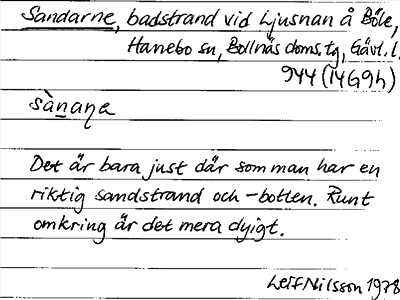 Sandarne, badstrand vid Ljusnan å Böle,
Hanebo sn, Bollnäs doms.tg, Gävl. l.
944 (14G9h)
sàṉaṉa
Det är bara just där som man har en
riktig sandstrand och -botten. Runt
omkring är det mera dyigt.
Leif Nilsson 1978